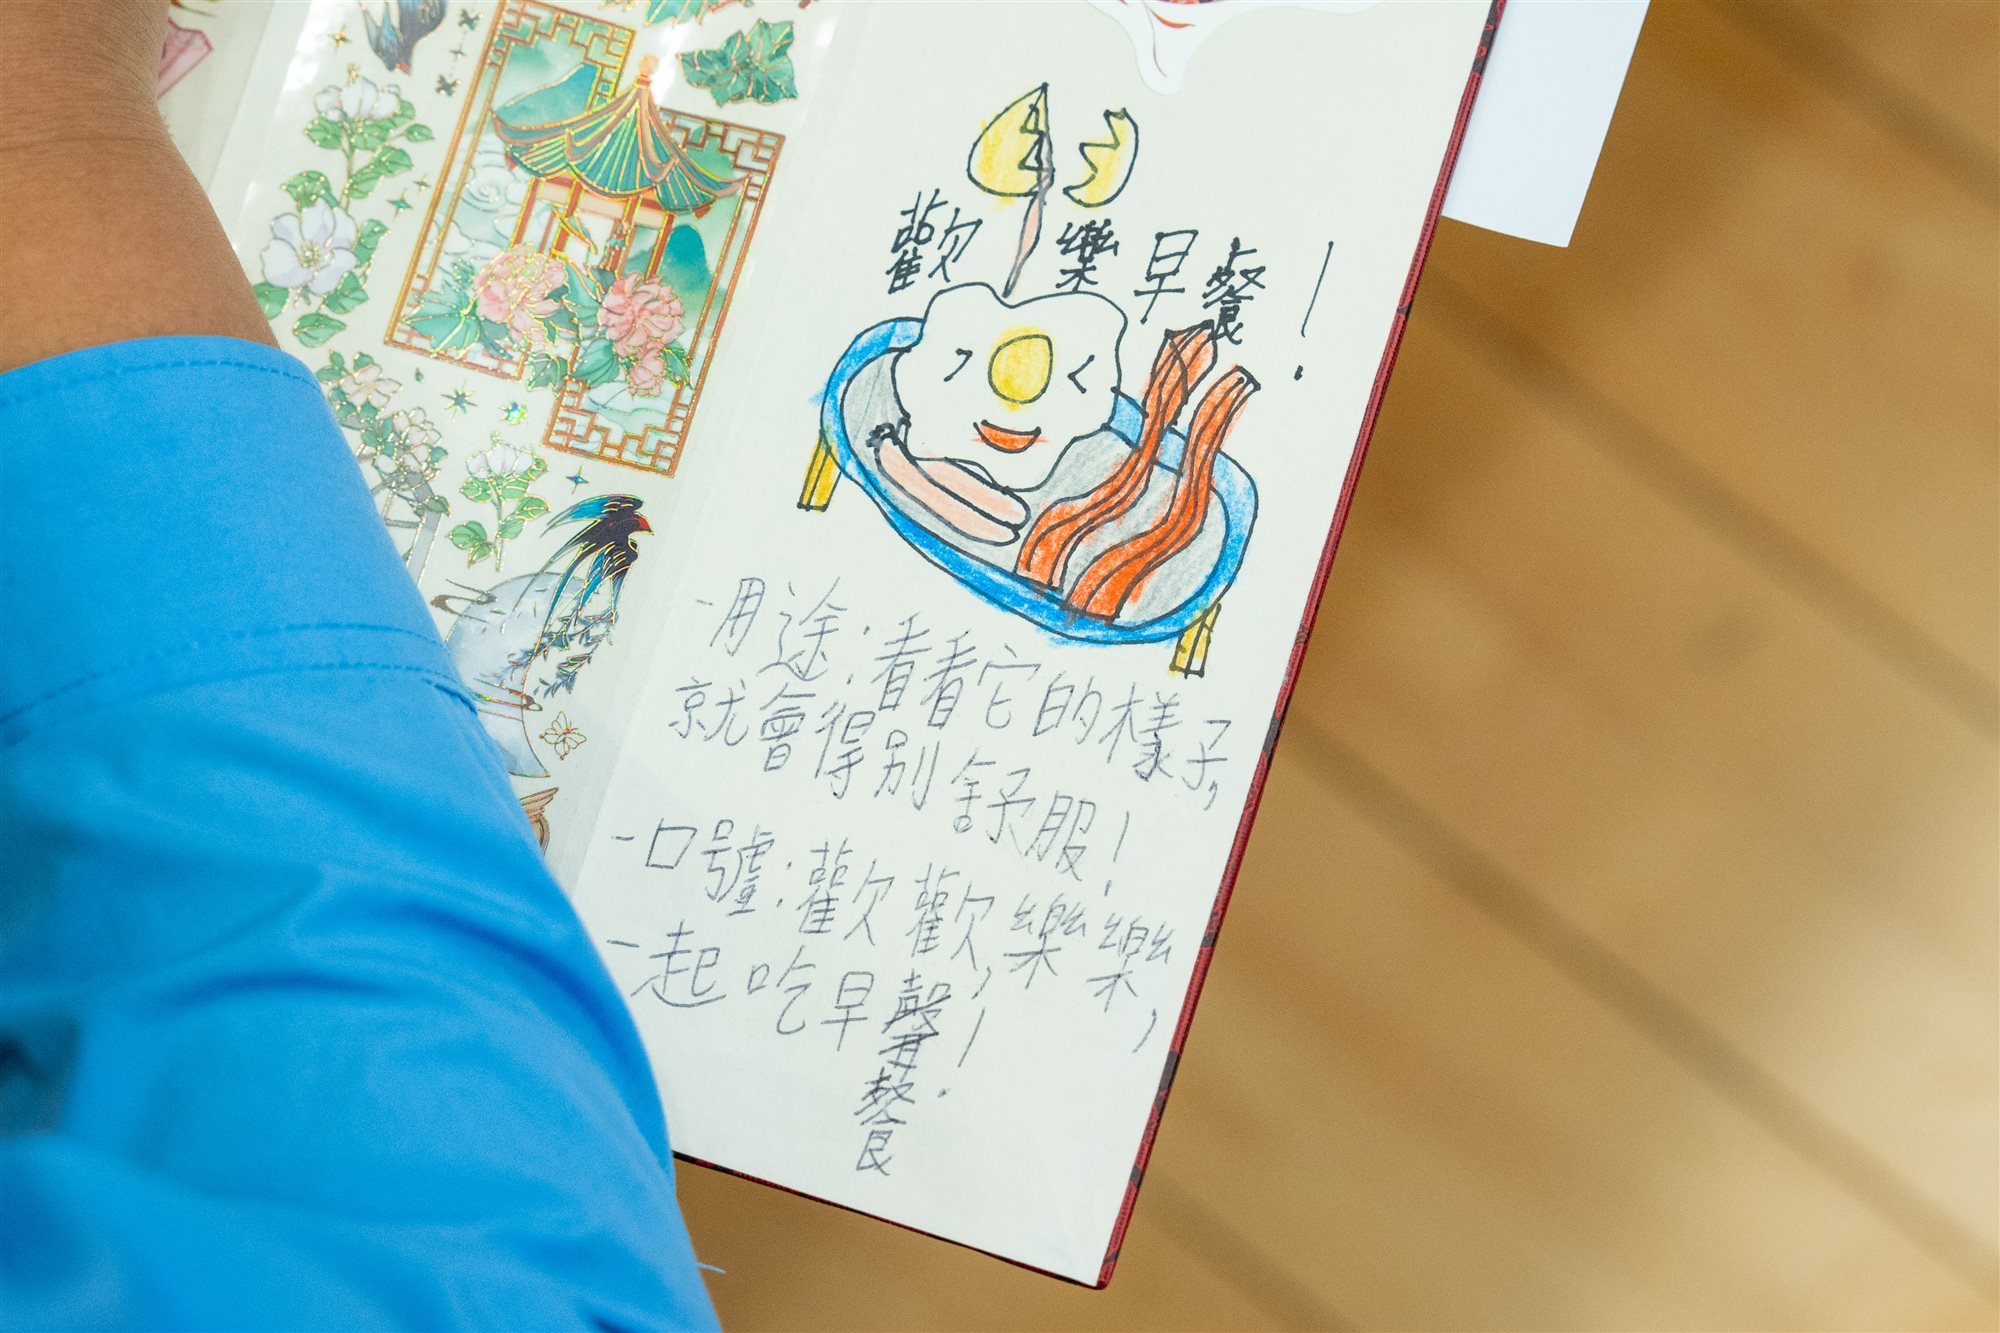 歡樂早餐!
-用途:看看它的樣子,
就會得別舒服!
-口號:歡歡,樂樂,
-起吃早餐!